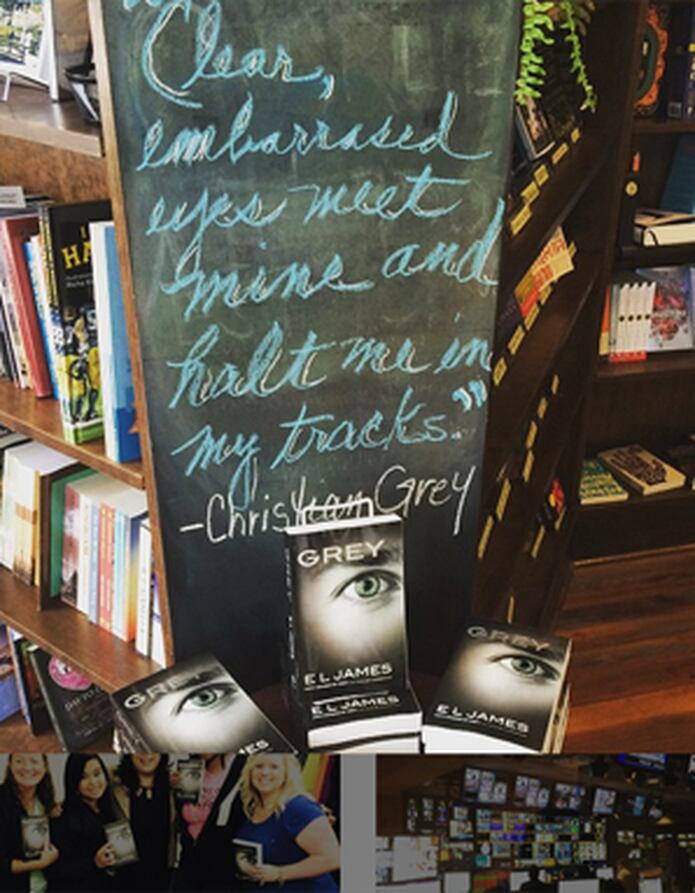 Clear,
embarrased
eyes meet
mine and
halt me in
my tracks."
-Christian Grey
GREY
E L JAMES
E L JAMES
GREY
E L JAMES
GREY
E L JAMES